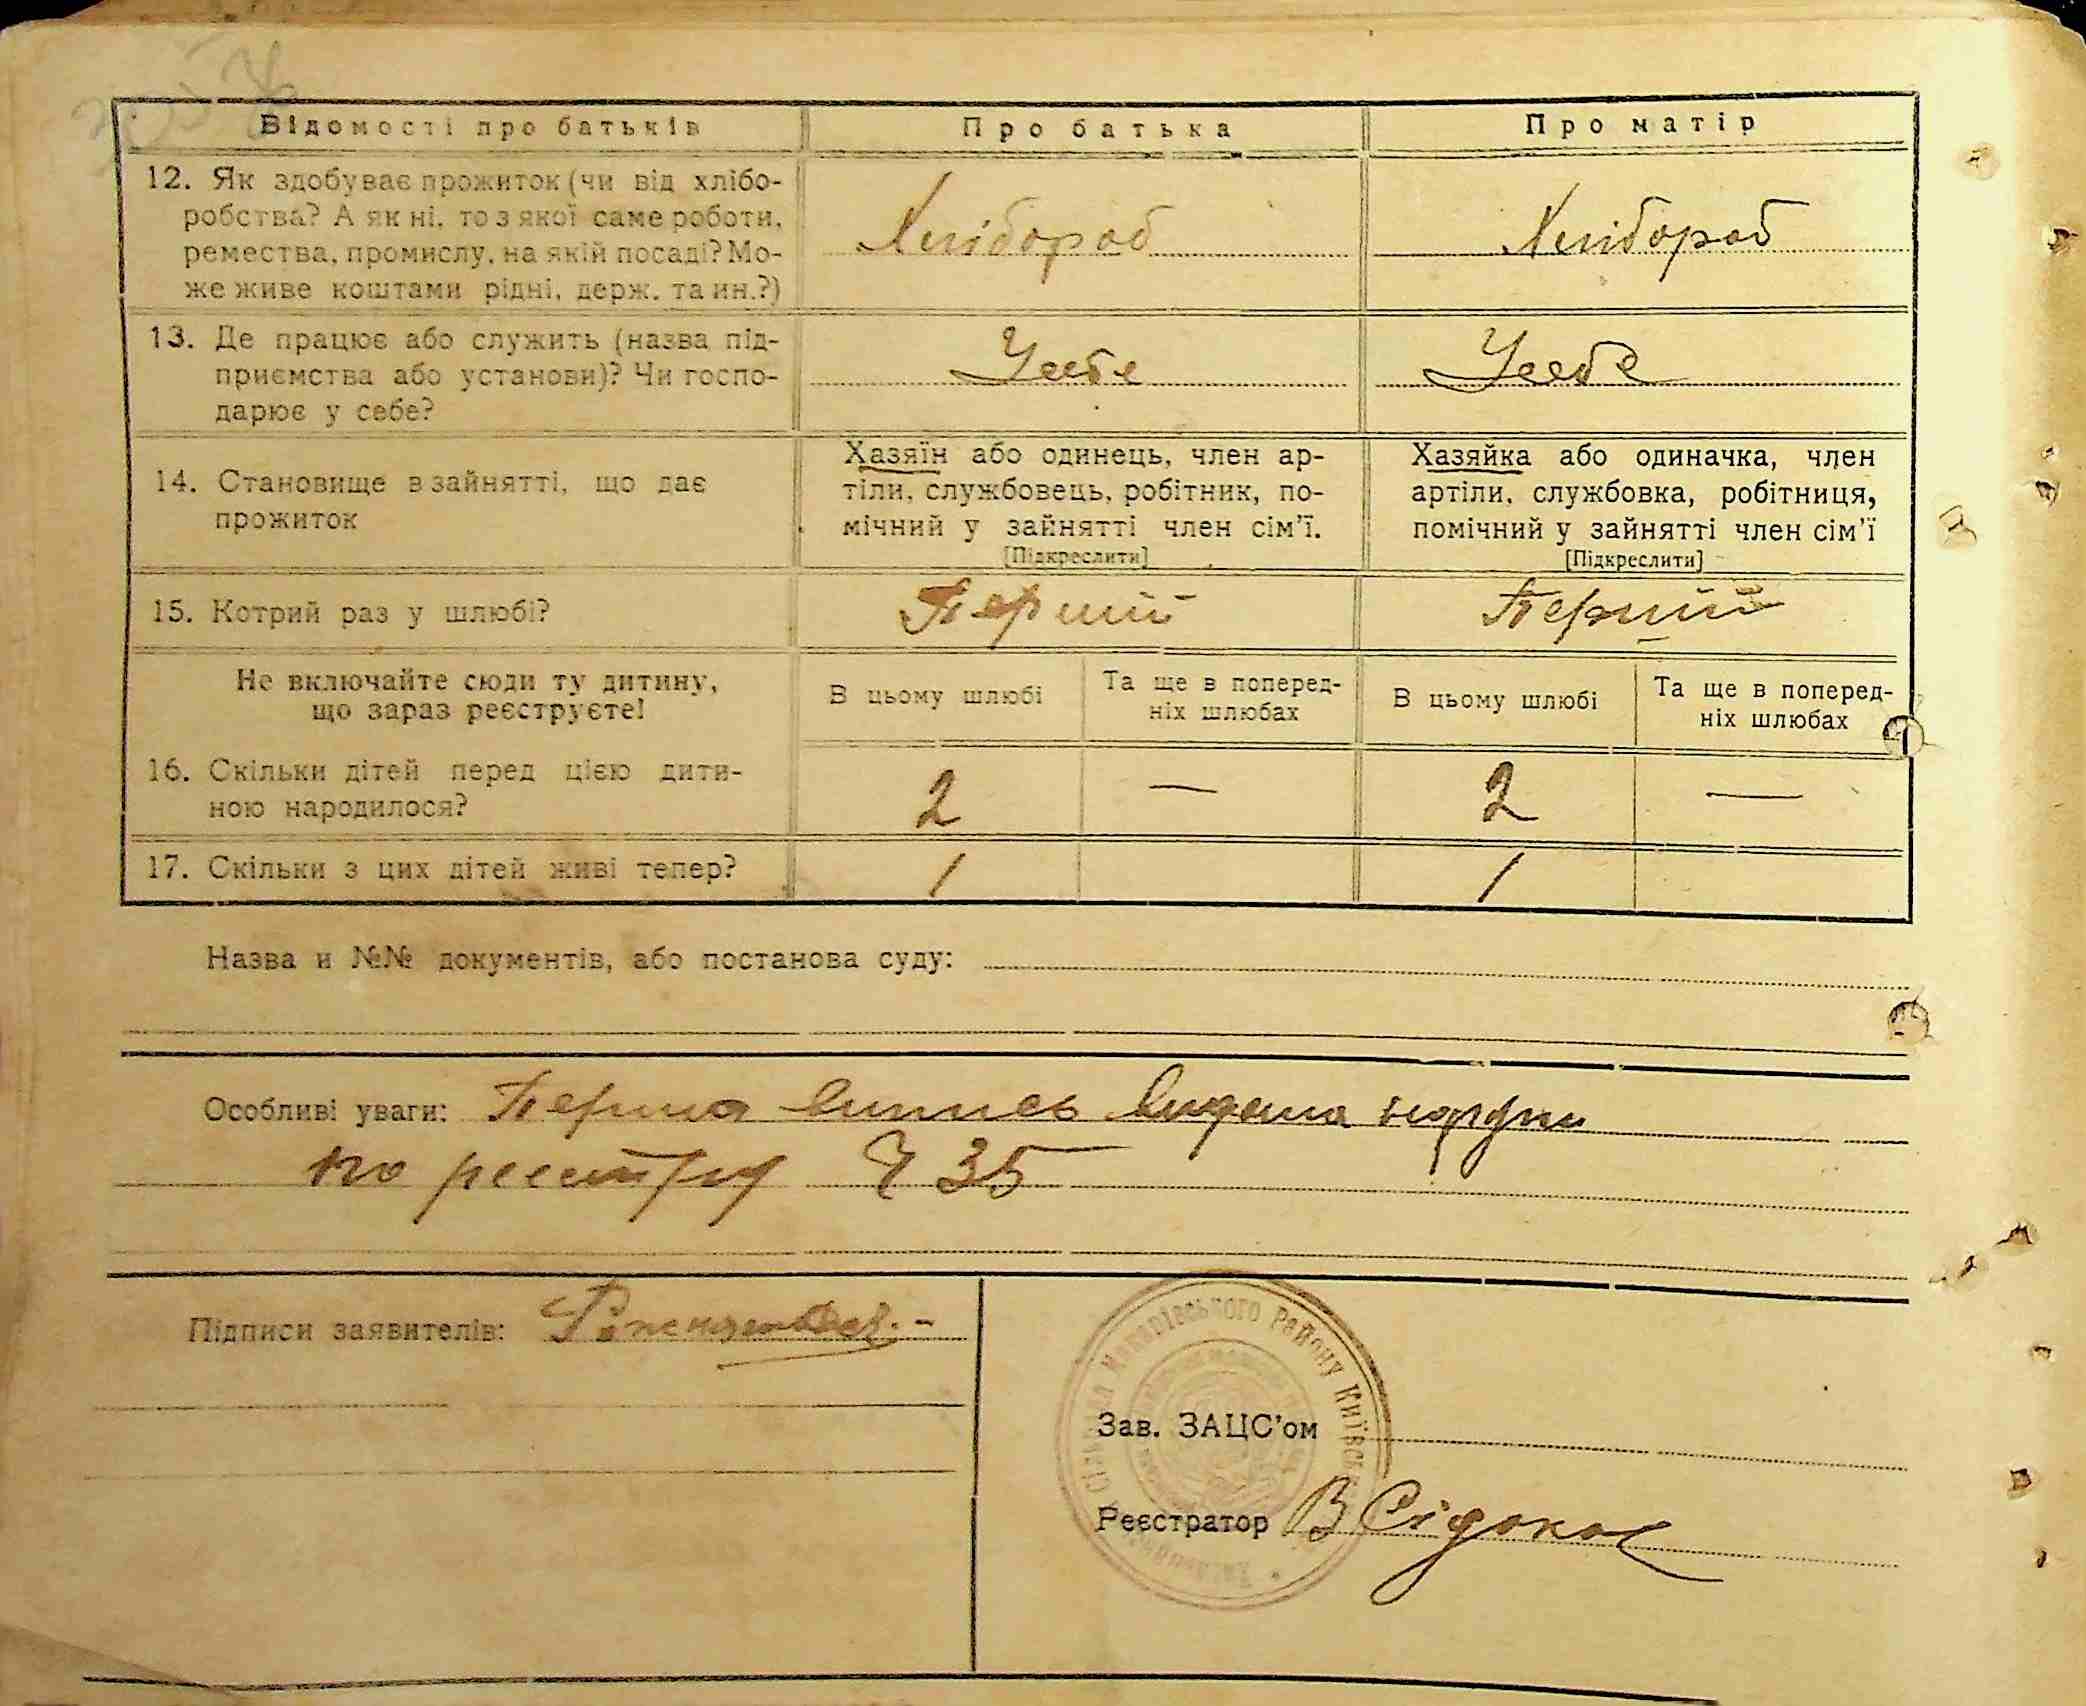 Відомості про батьків
Про батька
Про матір
12. Як здобуває прожиток (чи від хлібо-
робства? А як ні, то з якої саме роботи,
ремества, промислу, на якій посаді? Мо-
же живе коштами рідні, держ. та ин.?)
Хлібороб
Хлібороб
13. Де працює або служить (назва під-
приємства або установи)? Чи госпо-
дарює у себе?
У себе
У себе
14. Становище в зайнятті, що дає
прожиток
Хазяїн або одинець, член ар-
тіли, службовець, робітник, по-
мічний у зайнятті член сім’ї.
[Підкреслити]
Хазяйка або одиначка, член
артіли, службовка, робітниця,
помічний у зайнятті член сім’ї
[Підкреслити]
15. Котрий раз у шлюбі?
Перший
Перший
Не включайте сюди ту дитину,
що зараз реєструєте!
В цьому шлюбі
Та ще в поперед-
ніх шлюбах
В цьому шлюбі
Та ще в поперед-
ніх шлюбах
16. Скільки дітей перед цією дити-
ною народилося?
2
—
2
—
17. Скільки з цих дітей живі тепер?
1
1
Назва и №№ документів, або постанова суду:
Особливі уваги: Перша випись видана
по реестру Ч 35
Підписи заявителів:
Макарівського Району Київськ
Зав. ЗАЦС’ом
Реєстратор В